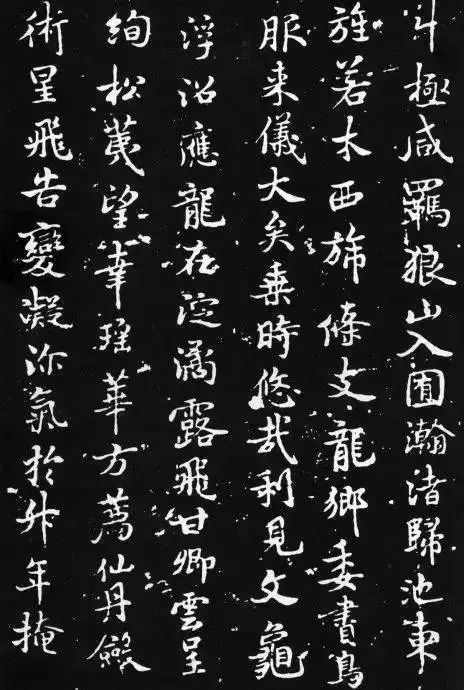 斗極咸羈狼山入囿瀚渚歸池東
旌若木西旆條支龍鄉委書鳥
服來儀大矣乘時悠哉利見文龜
浮沼應龍在淀潏露飛甘卿雲呈
絢松荑望幸瑤華方薦仙丹斂
術星飛告變凝沴氣於升年掩